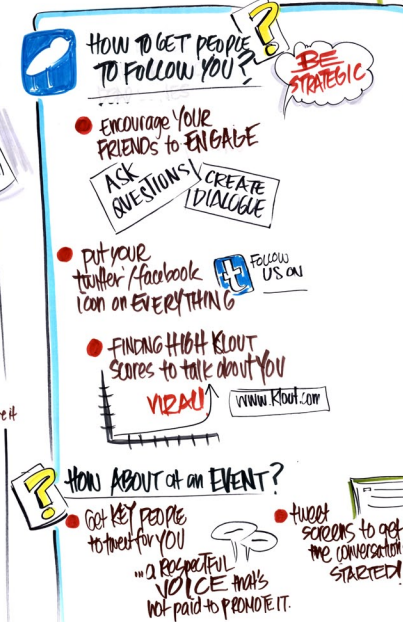 HOW TO GET PEOPLE
TO FOLLOW YOU?
?
BE
STRATEGIC
Encourage YOUR
FRIENDS to ENGAGE
ASK
QUESTIONS!
CREATE
DIALOGUE
PUT YOUR
twitter/facebook
icon on EVERYTHING
t
FOLLOW
US ON
FINDING HIGH KLOUT
scores to talk about YOU
VIRAL!
www.Klout.com
?
HOW ABOUT at an EVENT?
Get KEY PEOPLE
to tweet for YOU
...a RESPECTFUL
VOICE that's
not paid to PROMOTE IT.
tweet
screens to get
the conversation
STARTED!
e it